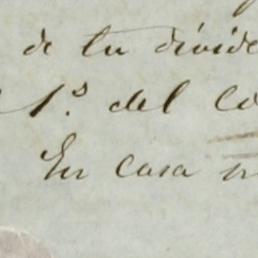 de tu divide
1.º del Co
En casa